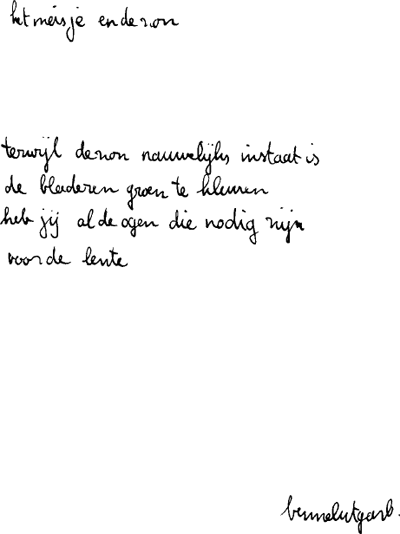 het meisje en de zon
terwijl de zon nauwelijks instaat is
de bladeren groen te kleuren
heb jij al de ogen die nodig zijn
voor de lente